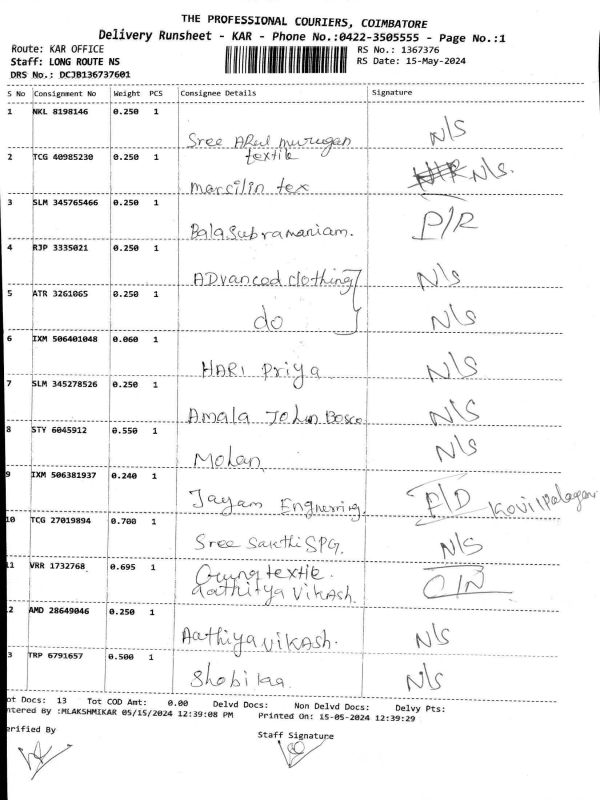 THE PROFESSIONAL COURIERS, COIMBATORE
Delivery Runsheet - KAR - Phone No.:0422-3505555 - Page No.:1
Route: KAR OFFICE
RS No.: 1367376
Staff: LONG ROUTE NS
RS Date: 15-May-2024
DRS No.: DCJB136737601
S No Consignment No Weight PCS Consignee Details Signature
1 NKL 8198146 0.250 1
Sree Arul murugan textile N/S
2 TCG 40985230 0.250 1
Marsilin tex N/S.
3 SLM 345765466 0.250 1
Balasubramaniam. P/R
4 RJP 3335021 0.250 1
ADvanced clothing N/S
5 ATR 3261065 0.250 1
do N/S
6 IXM 506401048 0.060 1
HARI Priya N/S
7 SLM 345278526 0.250 1
Amala John Bosco N/S
8 STY 6045912 0.550 1
Mohan N/S
9 IXM 506381937 0.240 1
Jayam Enginerring. P/D
10 TCG 27019894 0.700 1
Sree Sakthi SPG. N/S
11 VRR 1732768 0.695 1
textile.
aathitya Vikash.
2 AMD 28649046 0.250 1
Aathiya Vikash. N/S
3 TRP 6791657 0.500 1
Shobikaa N/S
ot Docs: 13 Tot COD Amt: 0.00 Delvd Docs: Non Delvd Docs: Delvy Pts:
ntered By :MLAKSHMIKAR 05/15/2024 12:39:08 PM Printed On: 15-05-2024 12:39:29
erified By
Staff Signature